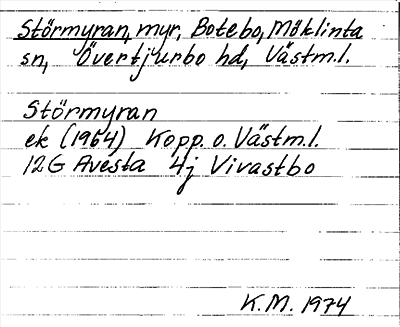 Störmyran, myr, Botebo, Möklinta
sn, Övertjurbo hd, Västm.l.
Störmyran
ek (1964) Kopp. o. Västm.l.
12G Avesta 4j Vivastbo
K.M. 1974